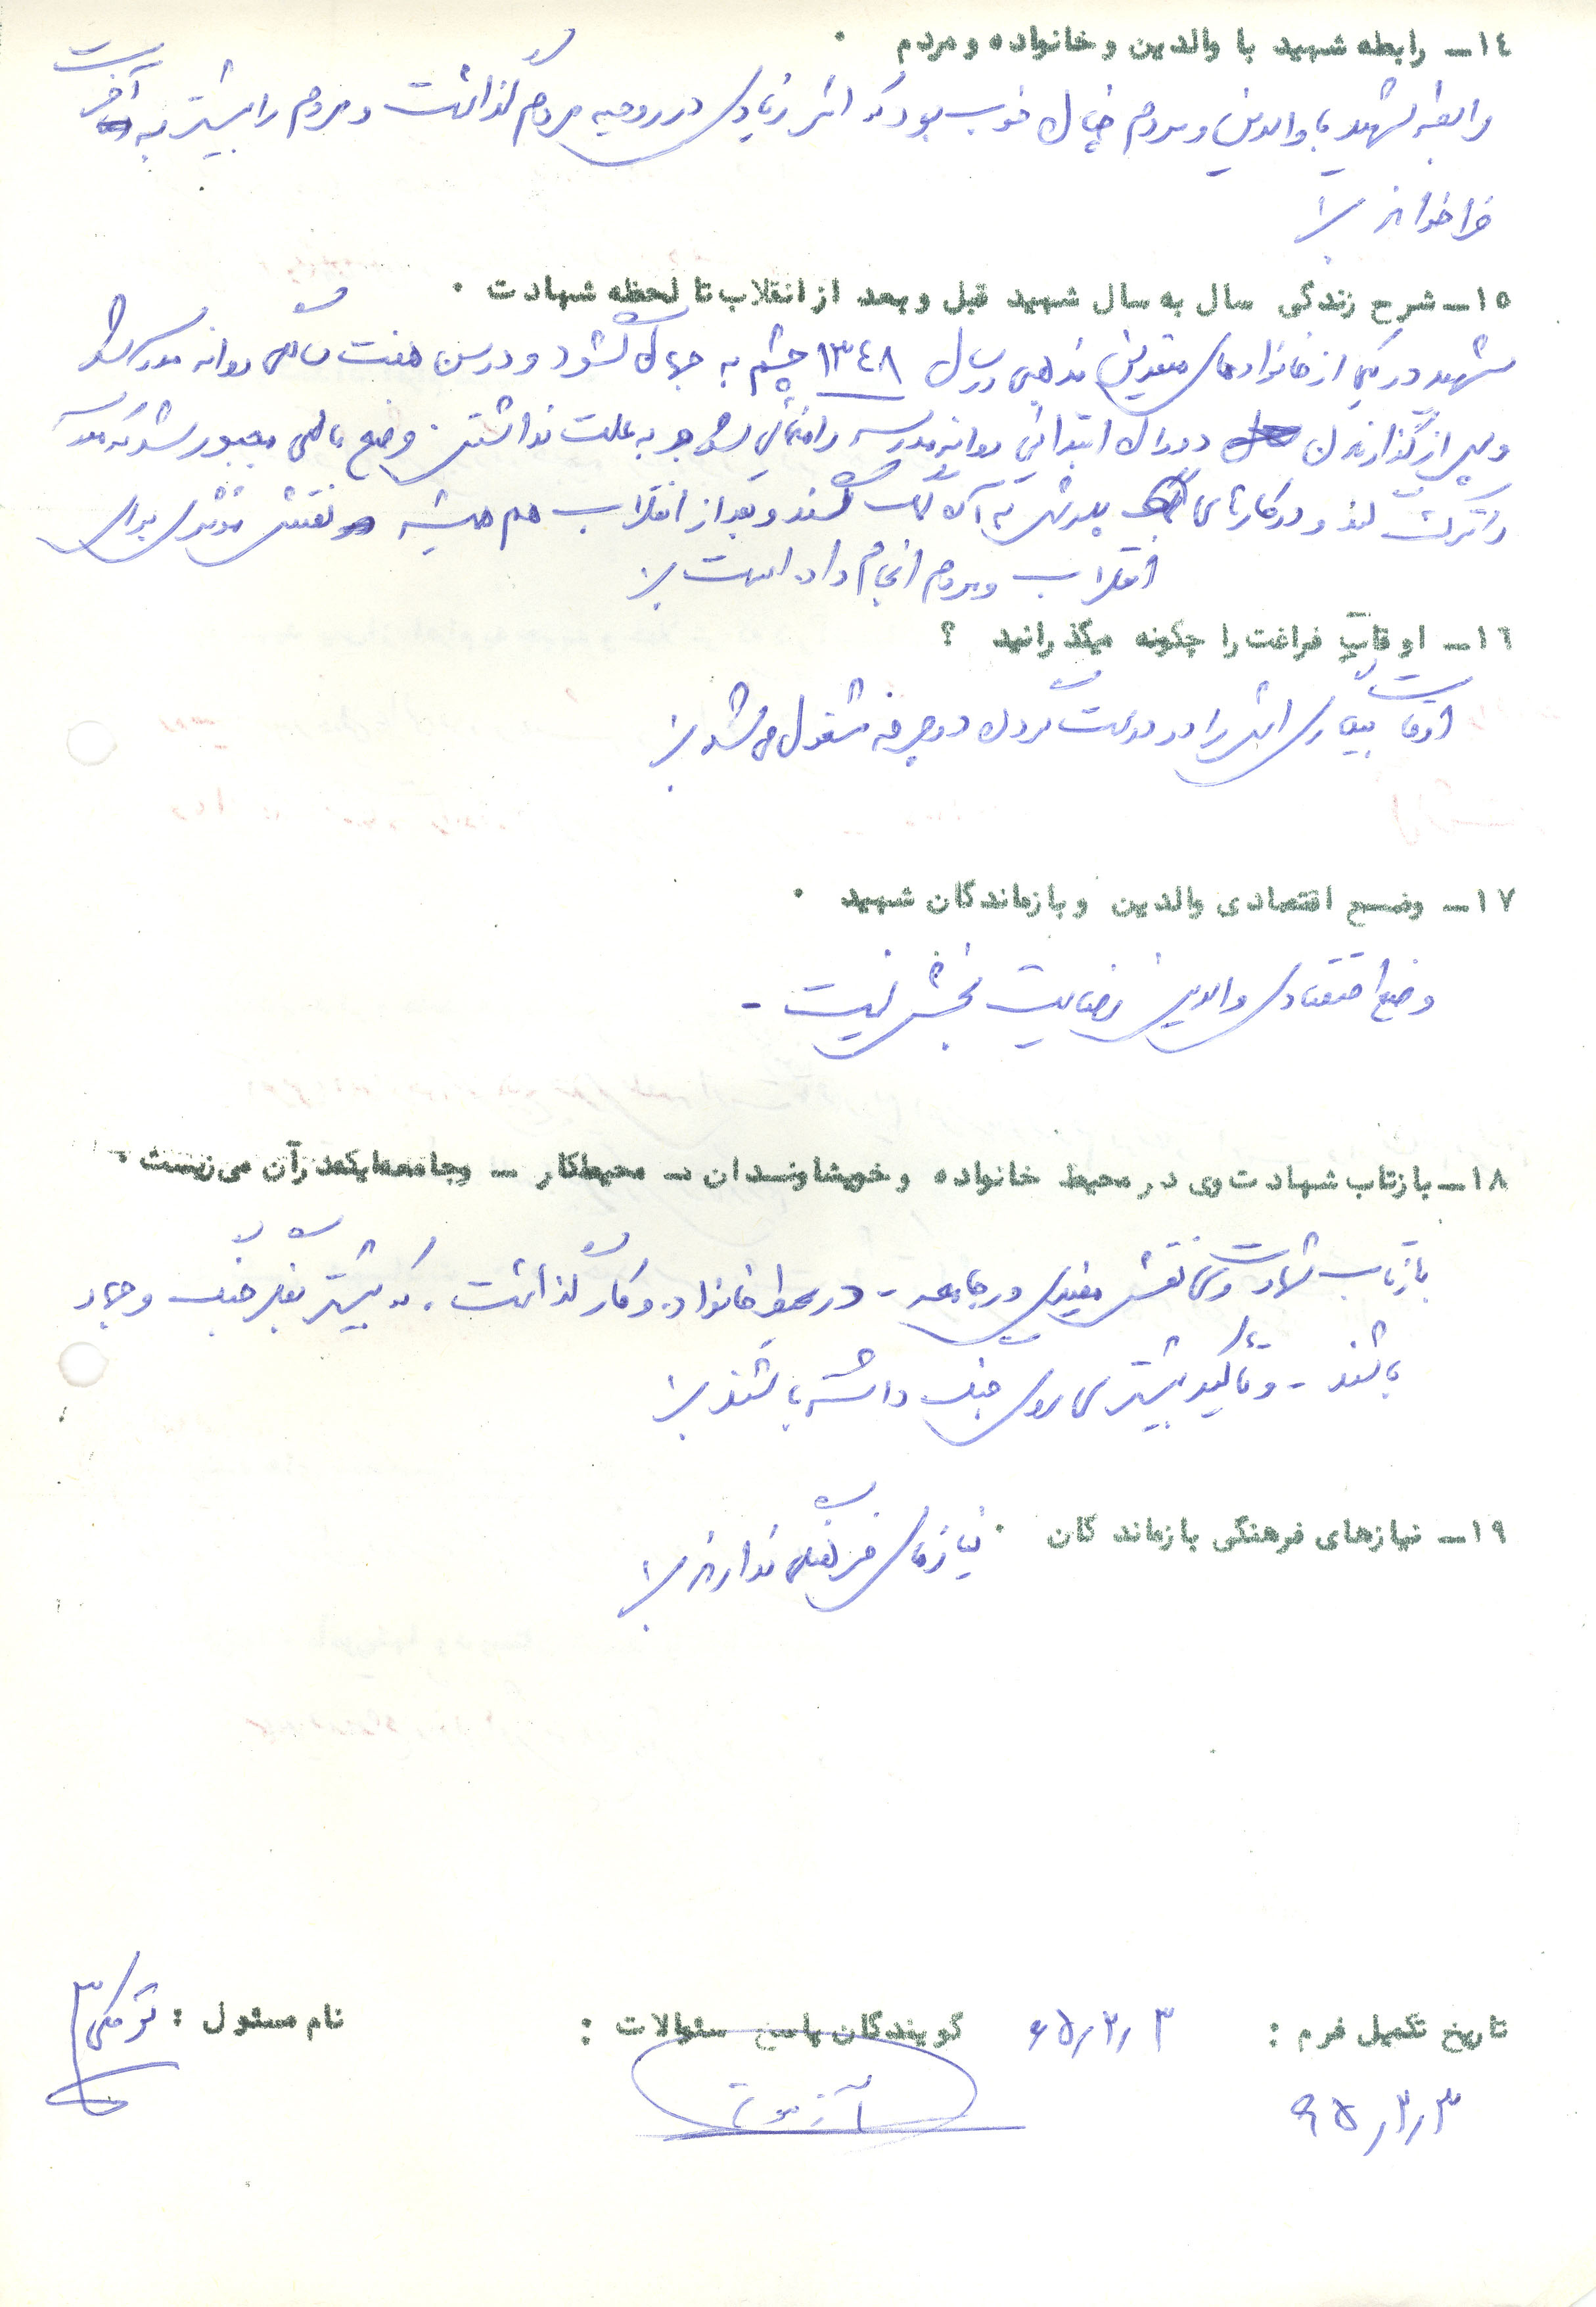 ١٤ـ رابطه شهید با والدین و خانواده و مردم ٠
رابطه شهید با والدین و مردم خیلی خوب بود که اثر زیادی در روحیه مردم گذاشت و مردم را بیشتر به آخرت
فراخواند
١٥ـ شرح زندگی سال به سال شهید قبل و بعد از انقلاب تا لحظه شهادت ٠
شهید در یکی از خانواده‌های متدین مذهبی در سال ١٣٤٨ چشم به جهان گشود و در سن هفت سالگی روانه مدرسه شد
و پس از گذارندن دوران ابتدائی روانه مدرسه راهنمائی شد و به علت نداشتن وضع مالی مجبور شد که مدرسه
را ترک کند و در کارهای پدرش به آن کمک کند و بعد از انقلاب هم همیشه نقش مؤثری برای
انقلاب و مردم انجام داده است
١٦ـ اوقات فراغت را چگونه میگذرانید ؟
اوقات بیکاری اش را در درست کردن دوچرخه مشغول می‌شد
١٧ـ وضع اقتصادی والدین و بازماندگان شهید ٠
وضع اقتصادی والدین رضایت بخش نیست -
١٨ـ بازتاب شهادت وی در محیط خانواده و خویشاوندان ـ محیط کار ـ و جامعه ایکه در آن می زیست ٠
بازتاب شهادت وی نقش مفیدی در جامعه - در محیط خانواده و کار گذاشت . که بیشتر بفکر جنگ و جهاد
باشند - و تأکید بیشتری روی جنگ داشته باشند
١٩ـ نیازهای فرهنگی بازماندگان ٠ نیازهای فرهنگی ندارند
تاریخ تکمیل فرم : ٦٥/٣/٣ گویندگان پاسخ سئوالات : نام مسئول :
٦٥/٣/٣